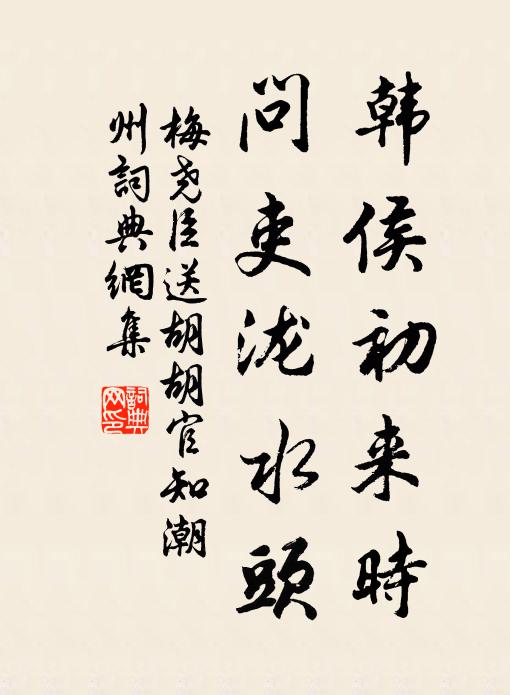 韩侯初来時
問吏泷水頭
梅尧臣送胡胡官知潮
州詞典網集
詞典网印